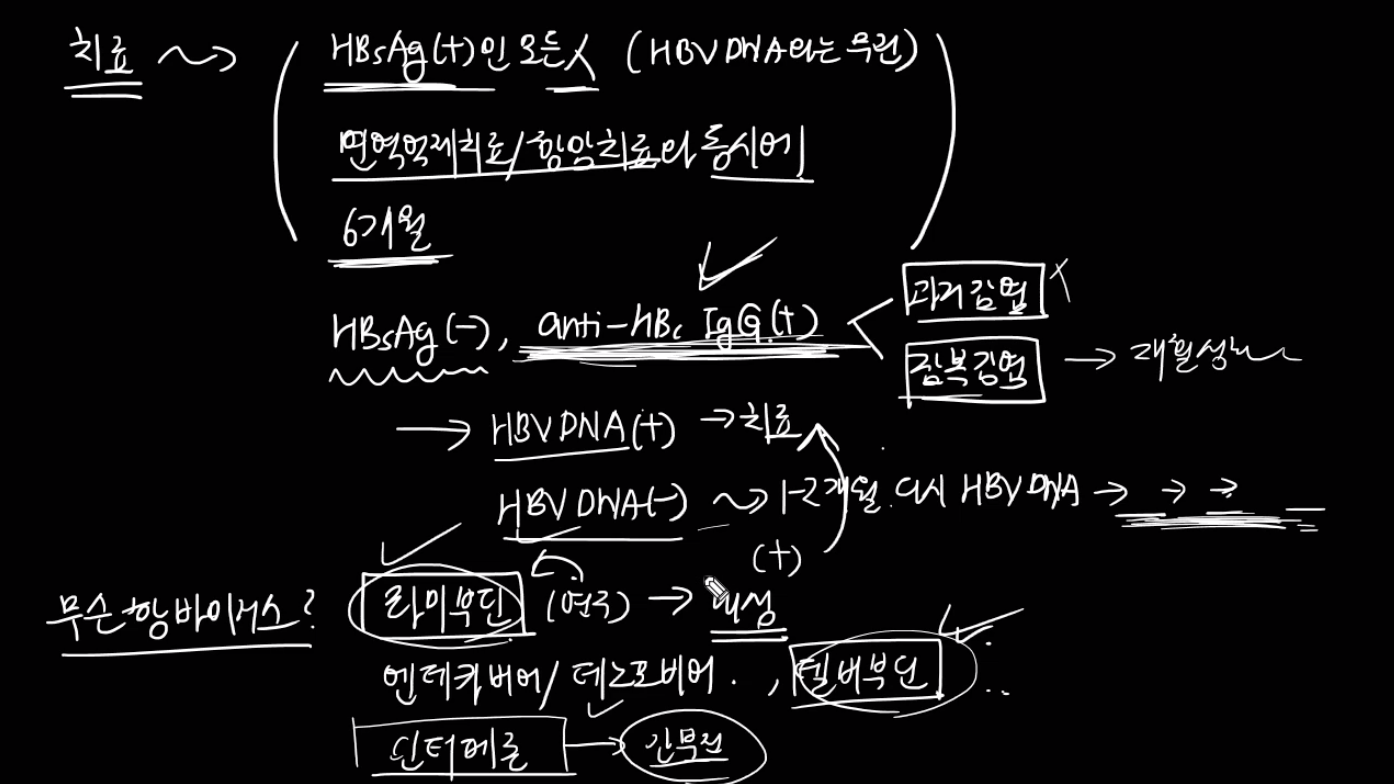 치료 ~> HBsAg(+)인 모든人 (HBV DNA와는 무관)
면역억제치료/항암치료와 동시에
6개월
HBsAg(-), anti-HBc IgG(+)
과거감염 X
잠복감염 → 재활성
→ HBV DNA(+) → 치료
HBV DNA(-) ~> 1-2개월 다시 HBV DNA → → →
(+)
무슨 항바이러스? 라미부딘 (연구) → 내성
엔테카비어/테노포비어, 텔비부딘
인터페론 → 간부전